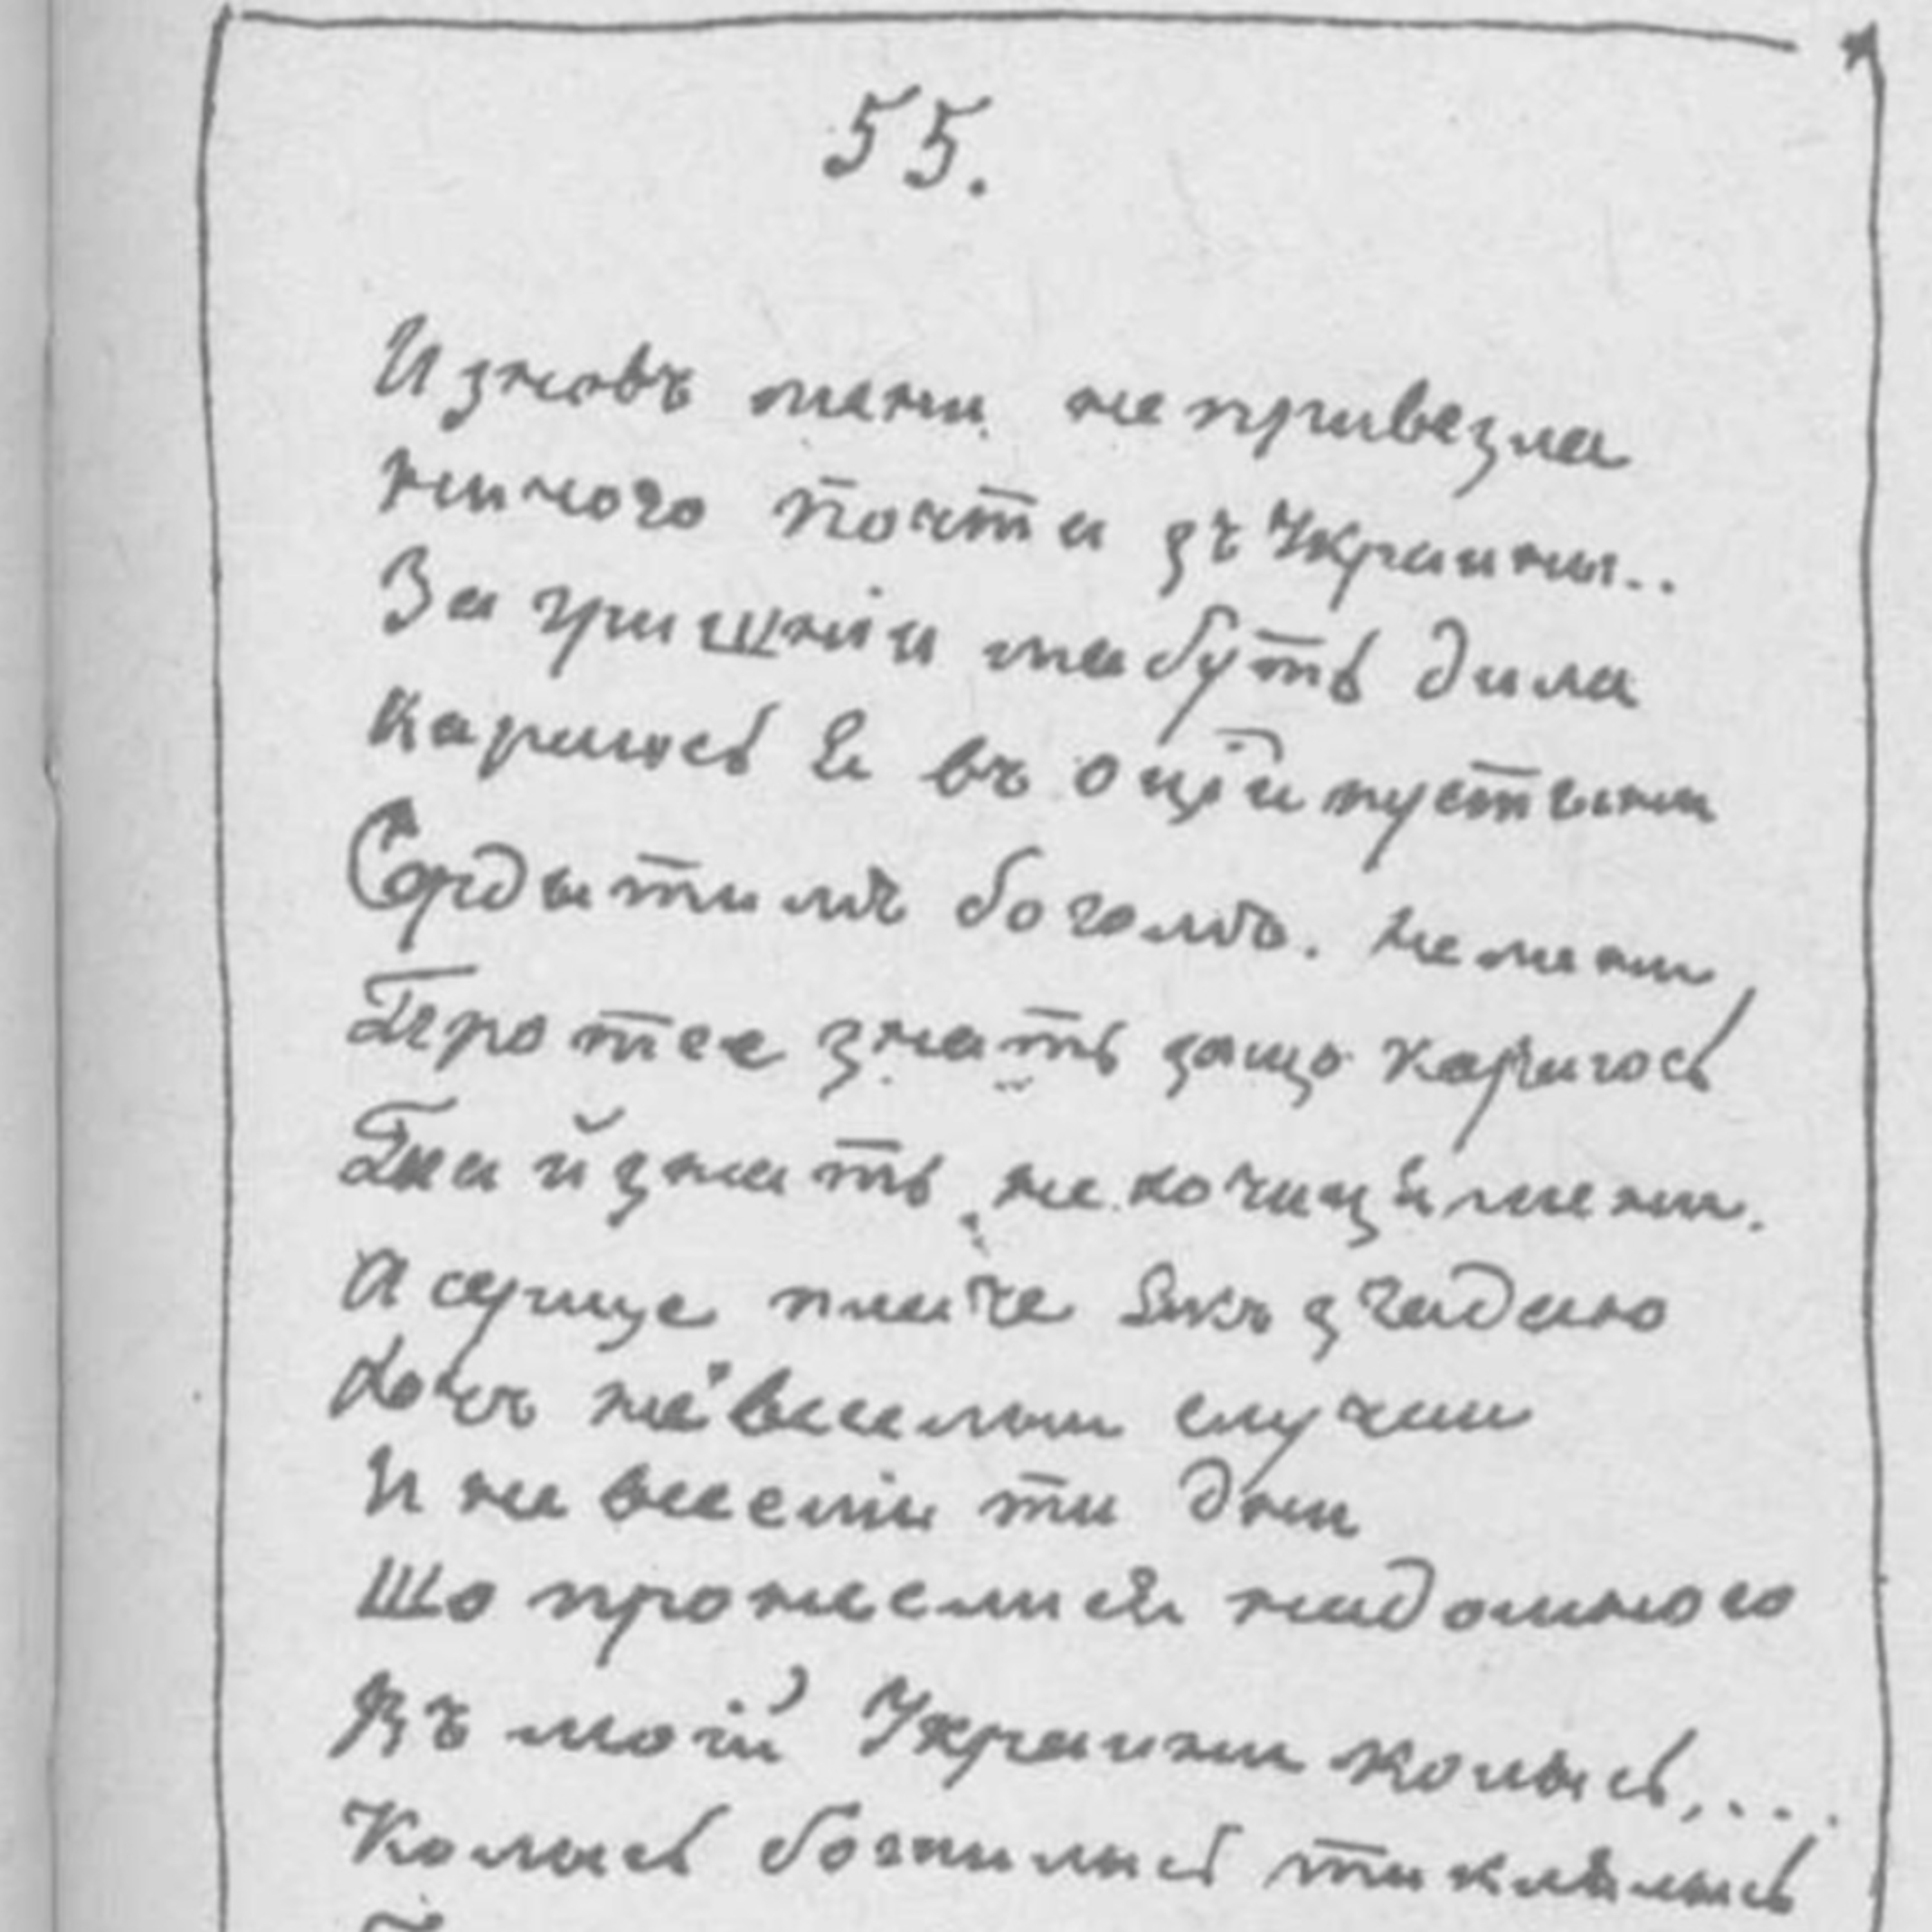 55.
И зновъ мени непривезла
ничого почти зъ Украины..
За гришніи мабуть дила
Караюсь Я въ оцій пустыни
Сердытимъ богомъ. не мени
Про тее знать защо караюсь
Та й знать не хочицця мени.
А серце плаче Якъ згадаю
Хочъ невеселыи случаи
И не веселіи ти дни
Що пронеслися надомною
Въ моій Украини колысь,...
Колысь божилысь та клялысь